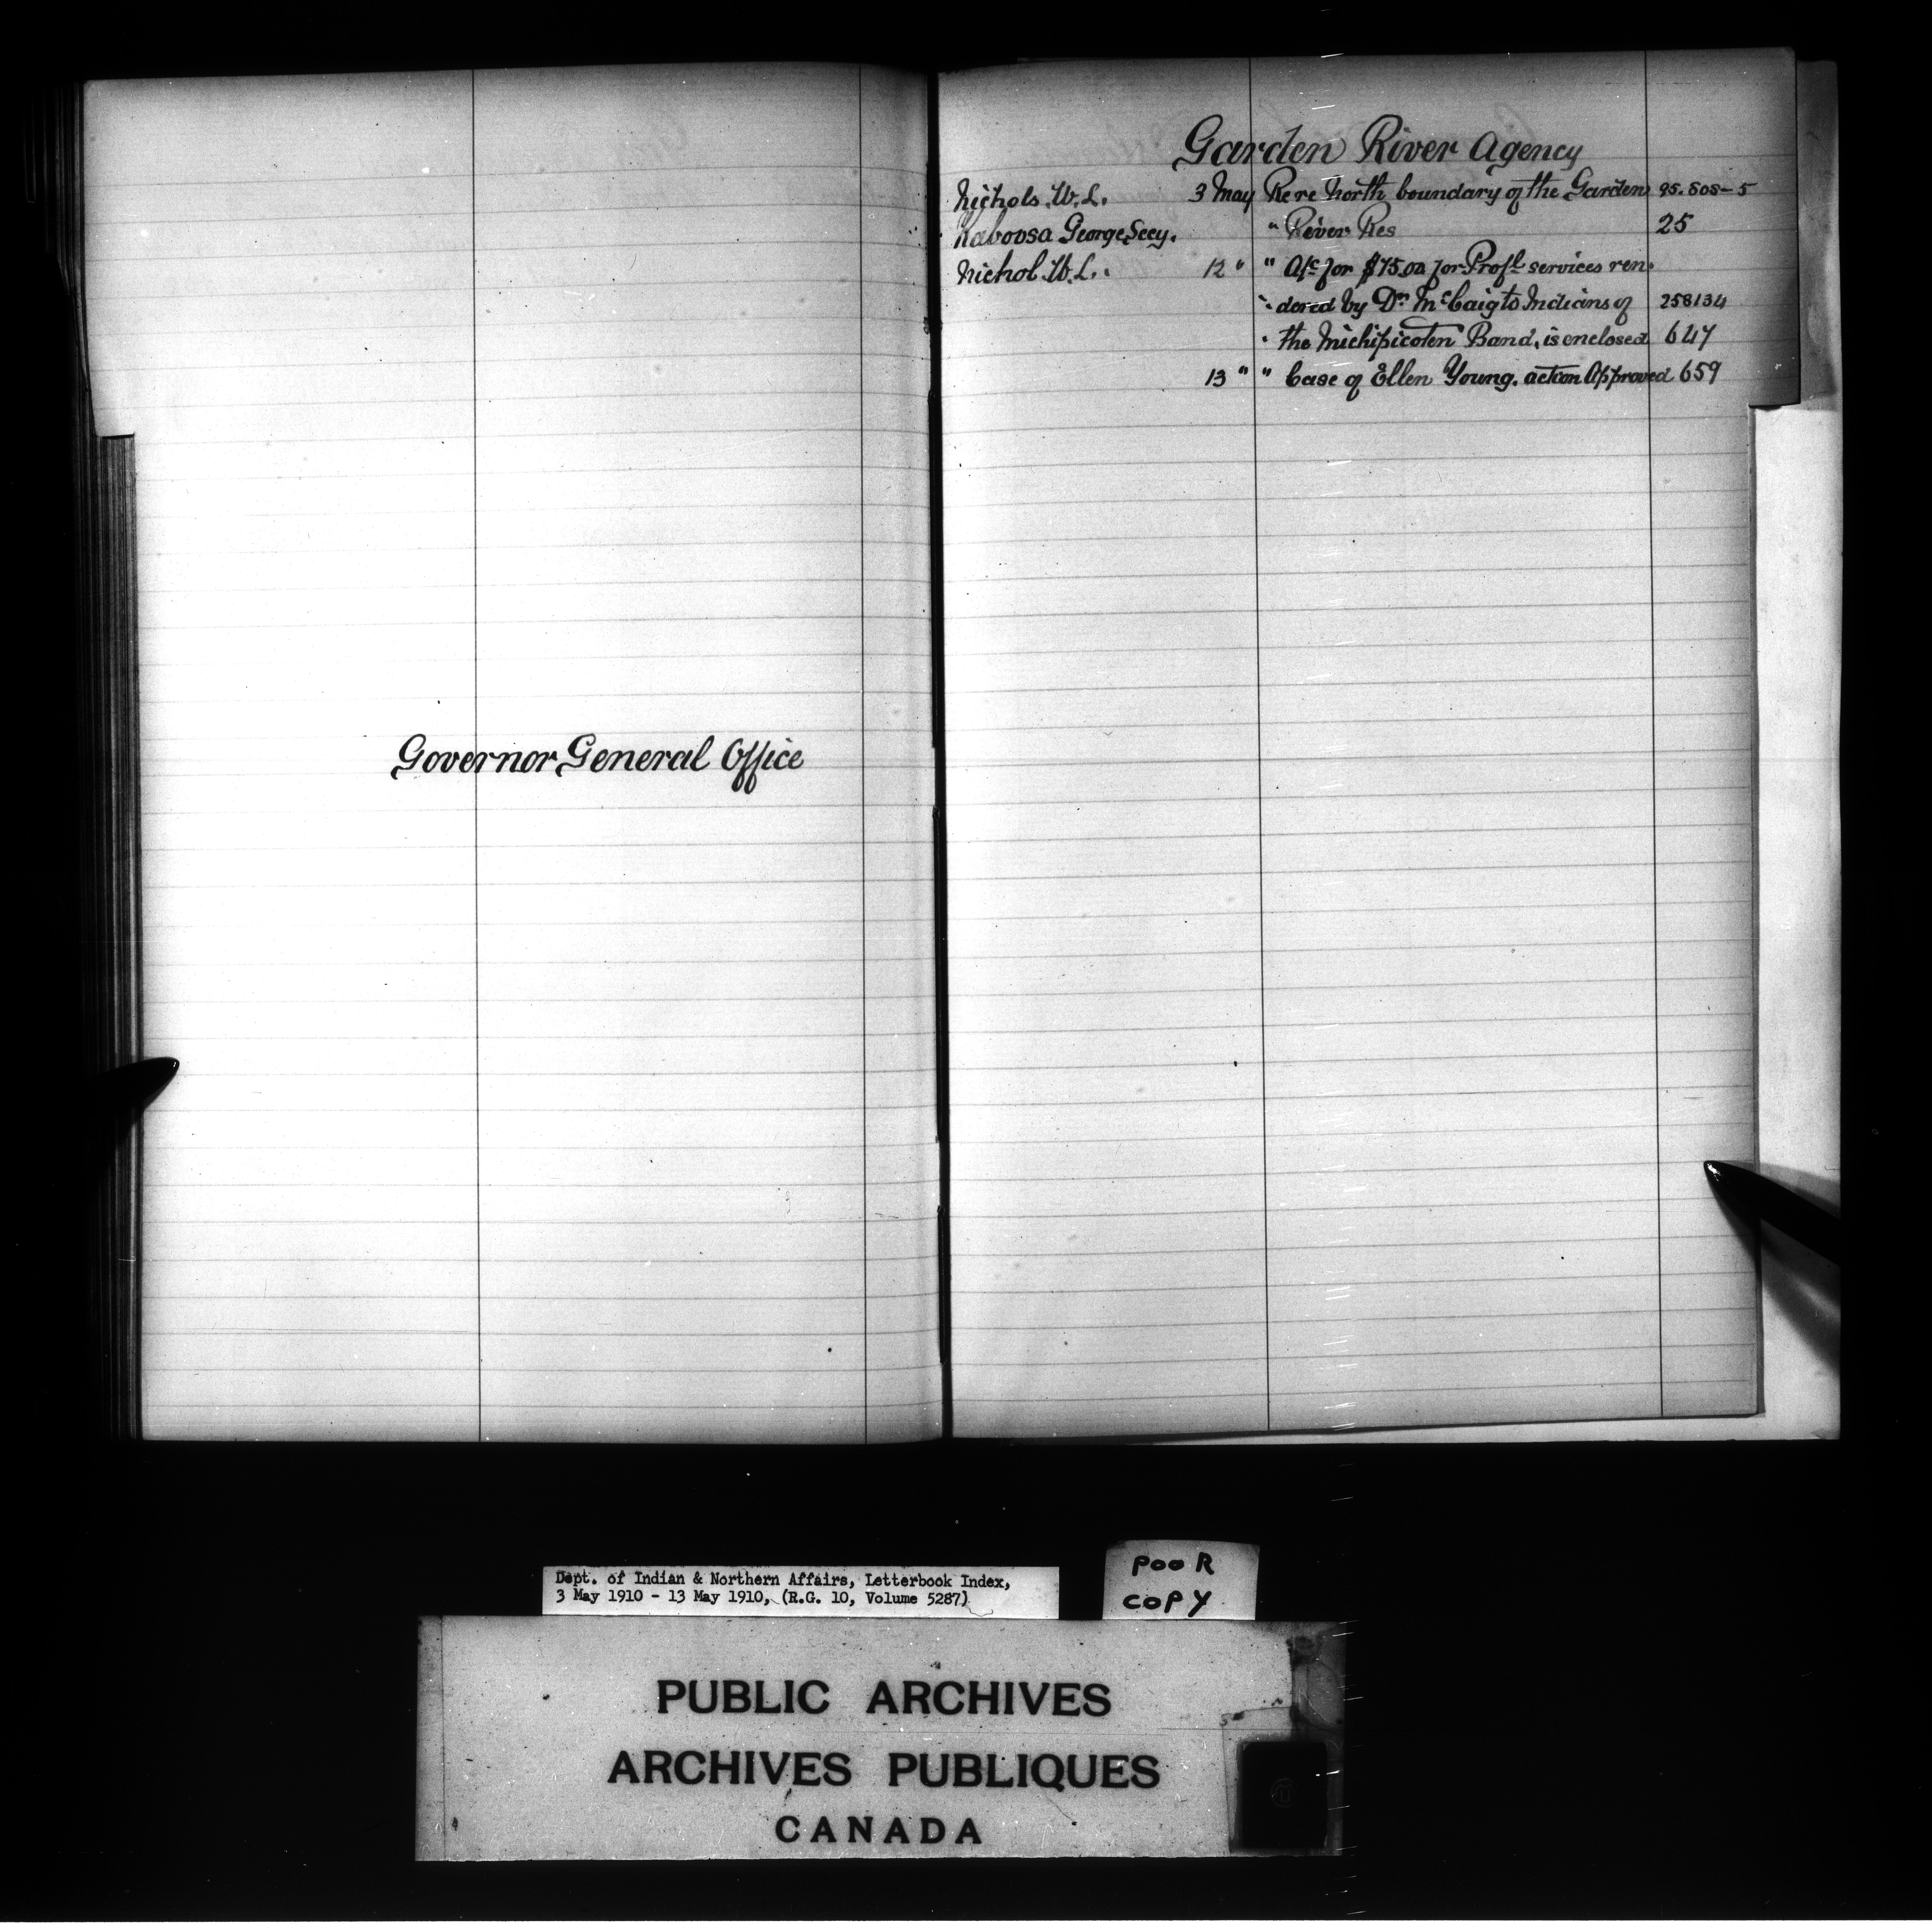 Governor General Office
Garden River Agency
Nichols. W. L. 3 May Re re north boundary of the Garden 95.808-5
Kaboosa George, Secy. " River Res 25
Nichol. W. L. 12 " " A/c for $75.00 for Profl services ren-
" dered by Dr. McCaig to Indians of 258134
" the Michipicoten Band, is enclosed 647
13 " " Case of Ellen Young. action Approved 659
Dept. of Indian & Northern Affairs, Letterbook Index,
3 May 1910 - 13 May 1910, (R.G. 10, Volume 5287)
POOR
COPY
PUBLIC ARCHIVES
ARCHIVES PUBLIQUES
CANADA